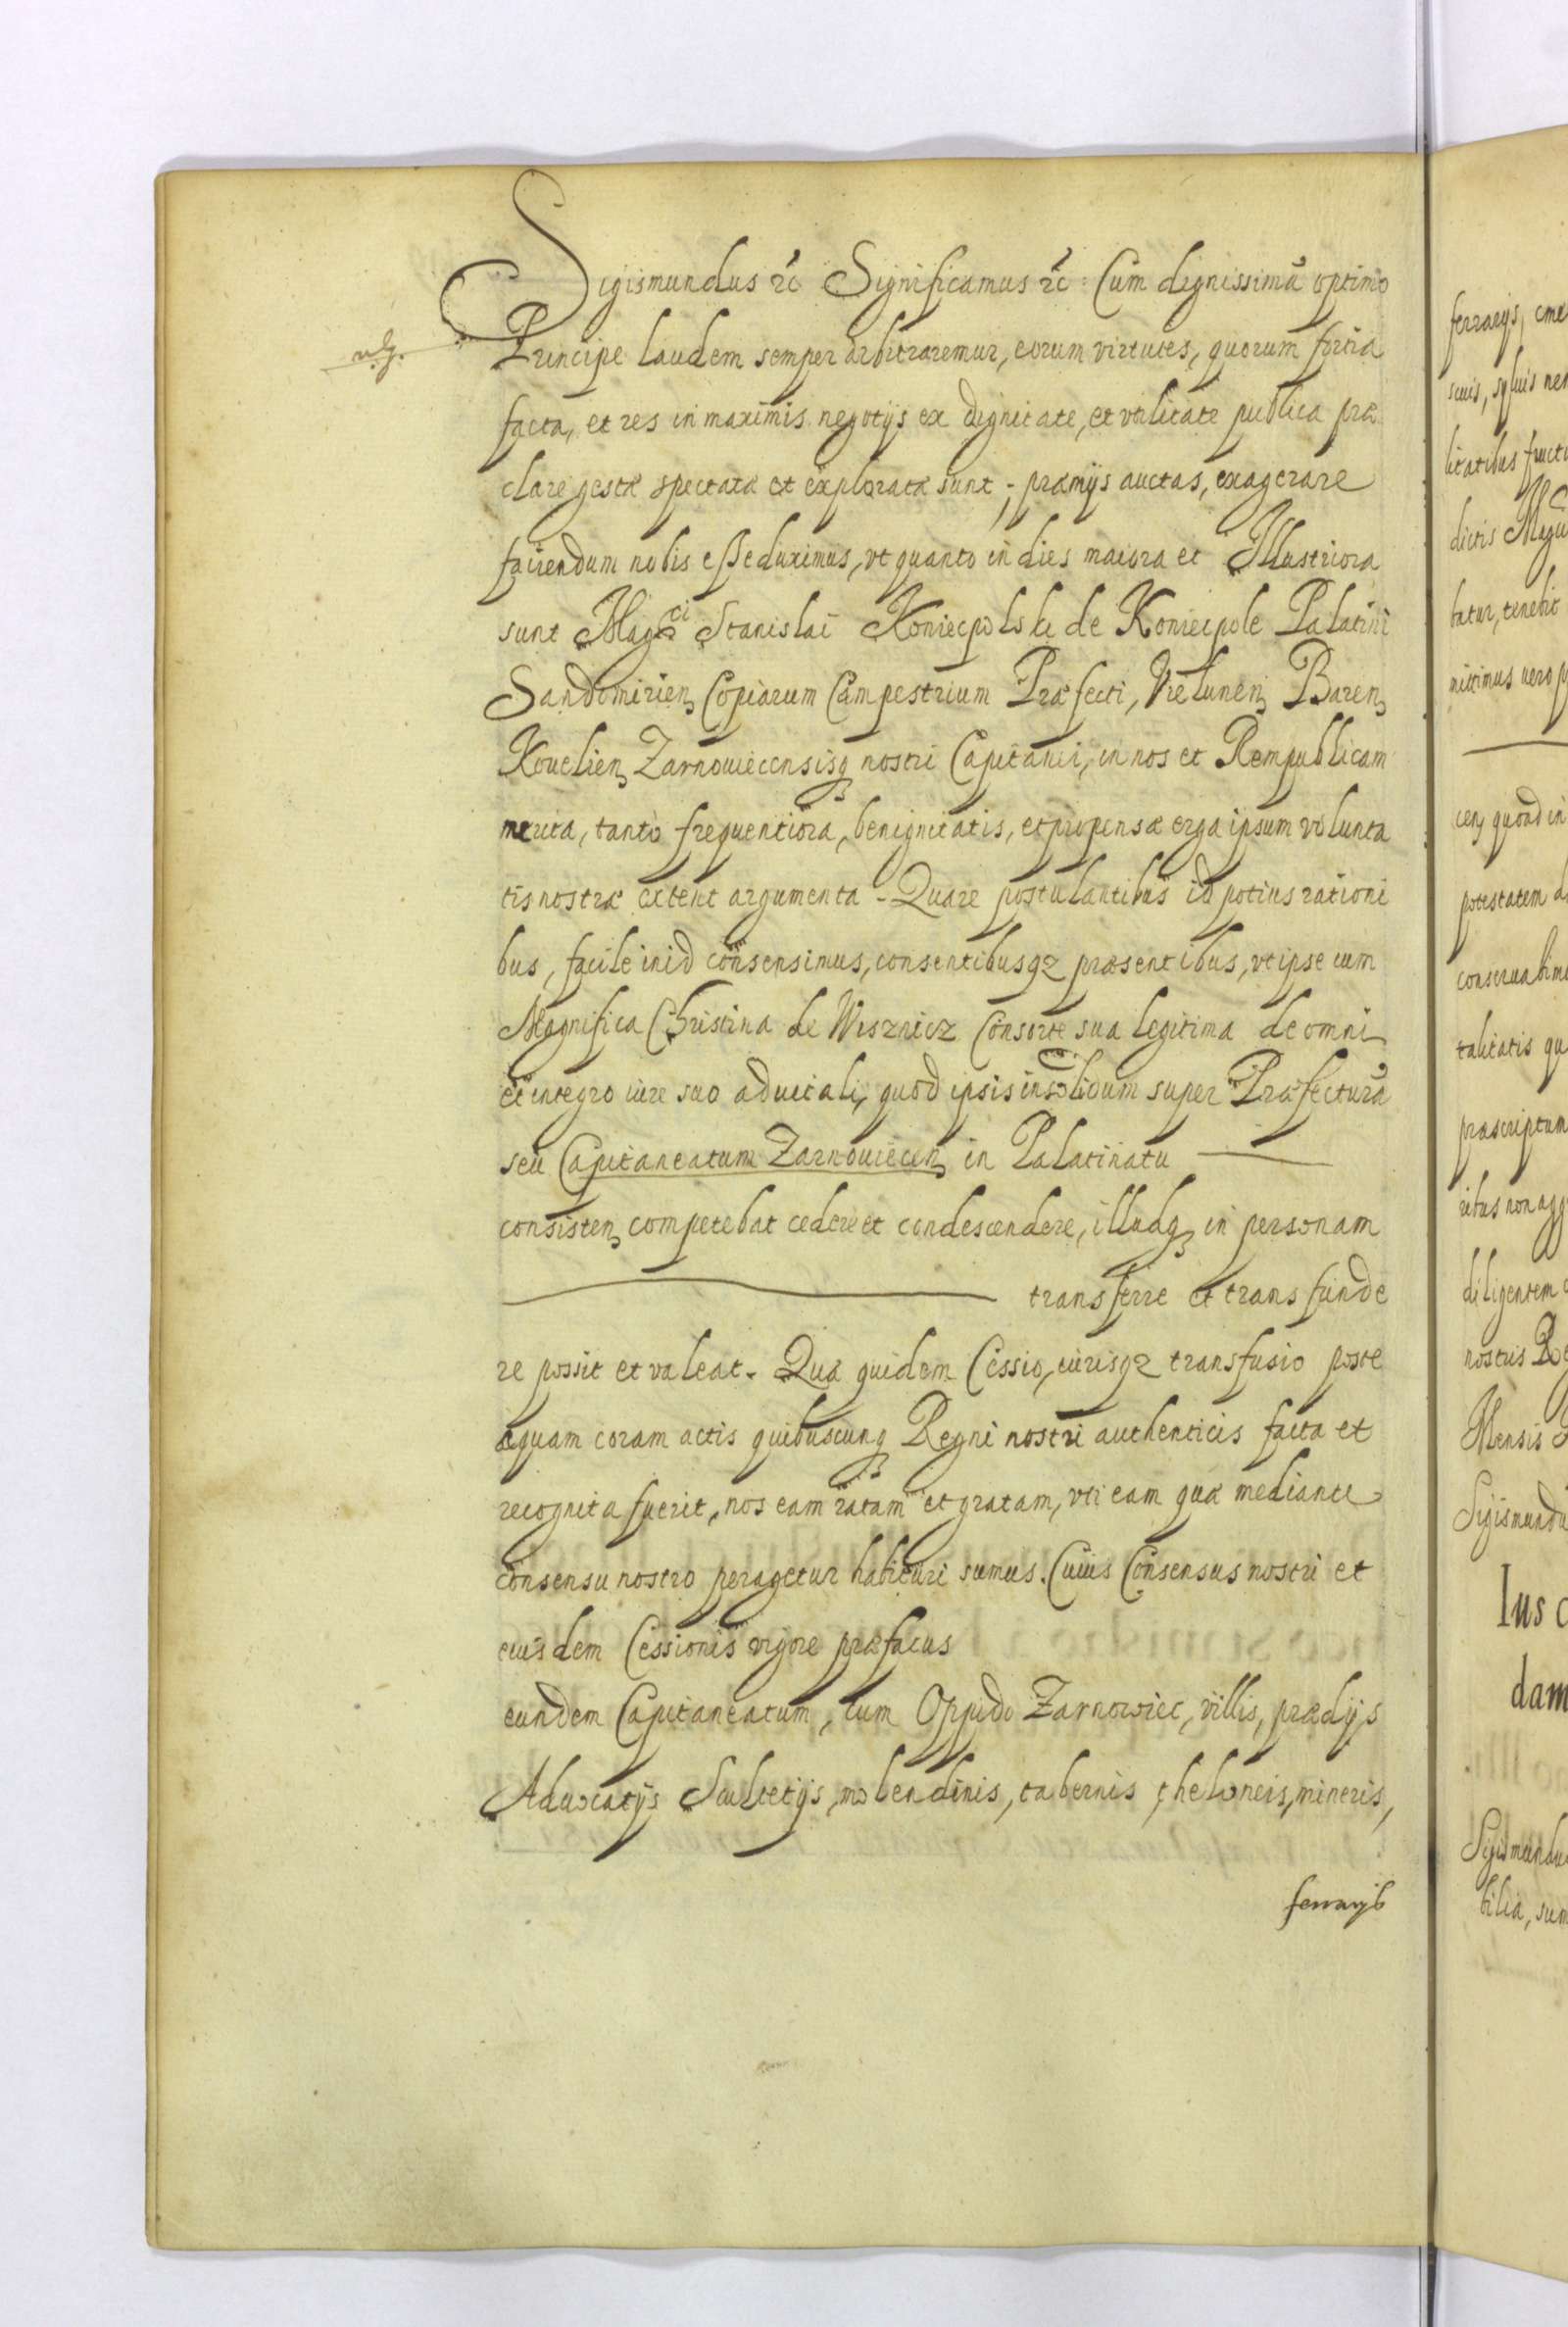 Sigismundus &c Significamus &c: Cum dignissimã optimo
Principe laudem semper arbitraremur, eorum virtutes, quorum fortia
facta, et res in maximis negotijs ex dignitate, et vtilitate publica præ
clare gestæ spectatæ et exploratæ sunt; præmijs auctas, exagerare
faciendum nobis eße duximus, vt quanto in dies maiora et Illustriora
sunt Mag^ci Stanislai Koniecpolski de Koniecpole Palatini
Sandomirien̄ Copiarum Campestrium Præfecti, Vielunen̄ Baren̄
Kouelien̄ Zarnouiecensisq̄ nostri Capitanei, in nos et Rempublicam
merita, tanto frequentiora, benignitatis, et propensæ erga ipsum volunta
tis nostræ extent argumenta - Quare postulantibus id potius rationi
bus, facile in id consensimus, consentibusqz præsentibus, vt ipse cum
Magnifica Christina de Wisznicz Consorte sua legitima de omni
et integro iure suo aduitali, quod ipsis insolidum super Præfecturã
seu Capitaneatum Zarnouiecen̄ in Palatinatu
consisten̄ competebat cedere et condescendere, illudq̄ in personam
transferre et transfunde
re possit et valeat. Quæ quidem Cessio, iurisqz transfusio poste
aquam coram actis quibuscunq̄ Regni nostri authenticis facta et
recognita fuerit, nos eam ratam et gratam, vti eam quæ mediante
consensu nostro peragetur habituri sumus. Cuius Consensus nostri et
eiusdem Cessionis vigore præfatus
eundem Capitaneatum, cum Oppido Zarnowiec, villis, prædijs
Aduocatijs Scultetijs, molendinis, tabernis theloneis, mineris,
ferrarijs
ferrarijs,
dictis
tatur, tenebit
mittimus vero
quoad in
potestatem
talitatis
præscriptum
ribus non
diligentem
nostris
Mensis
Sigismundus
Ius
dam
Sigismundus
bilia,